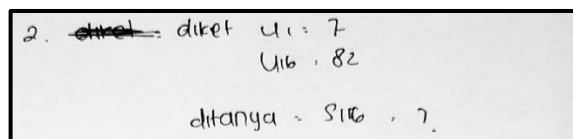 2. diket U1 = 7
U16 . 82
ditanya = S16 . ?